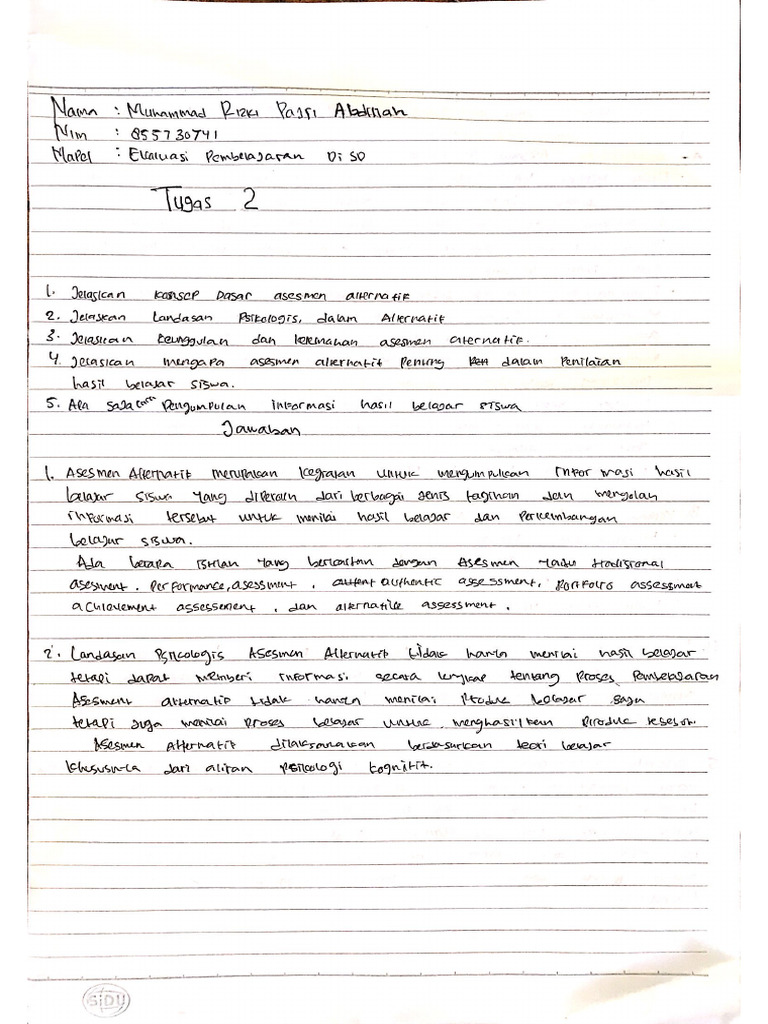 Nama : Muhammad Rizki Pajri Abdillah
Nim : 855730741
Mapel : Evaluasi Pembelajaran Di SD
Tugas 2
1. Jelaskan konsep Dasar asesmen alternatif
2. Jelaskan Landasan Psikologis, dalam Alternatif
3. Jelaskan keunggulan dan kelemahan asesmen alternatif.
4. Jelaskan mengapa asesmen alternatif penting dalam Penilaian
hasil belajar siswa.
5. Apa saja cara Pengumpulan informasi hasil belajar siswa
Jawaban
1. Asesmen Alternatif merupakan kegiatan untuk mengumpulkan Informasi hasil
belajar siswa yang diperoleh dari berbagai jenis tagihan dan mengolah
informasi tersebut untuk menilai hasil belajar dan Perkembangan
belajar siswa.
Ada berapa istilah yang berkaitan dengan Asesmen yaitu tradisional
asesment, Performance, asessment, authentic assessment, Portfolio assessment
achievement assessement, dan alternatile assessment.
2. Landasan Psicologis Asesmen Alternatif tidak hanya menilai hasil belajar
tetapi dapat memberi informasi secara lengkap tentang Proses Pembelajaran
Asesment alternatif tidak hanya menilai Produk belajar saja
tetapi juga menilai Proses belajar untuk menghasilkan Produk tesebut.
Asesmen Alternatif dilaksanakan berdasarkan teori belajar
khususnya dari aliran psicologi kognitif.
SiDU